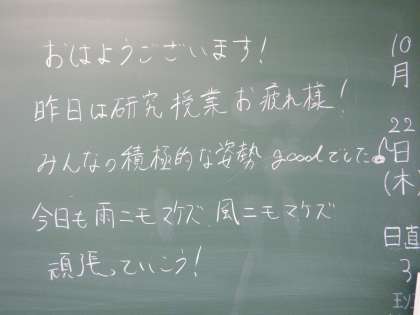 おはようございます!
昨日は研究授業お疲れ様!
みんなの積極的な姿勢goodでした。
今日も雨ニモマケズ、風ニモマケズ
頑張っていこう!
10月22日(木)
日直